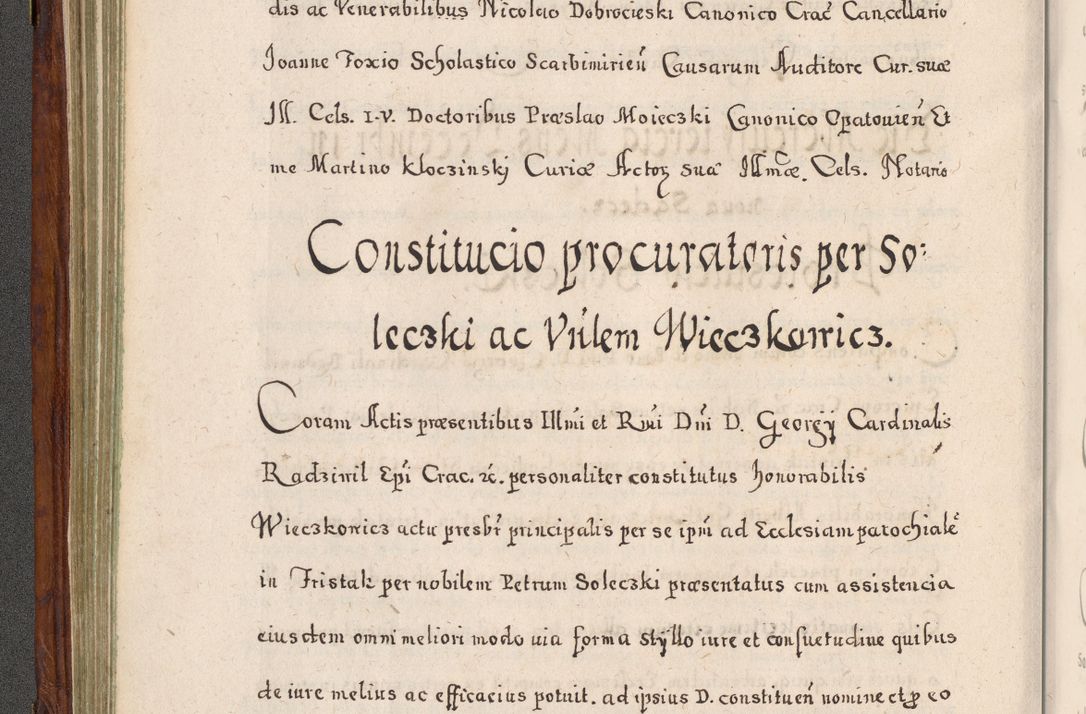 dis ac Venerabilibus Nicolao Dobrocieski Canonico Crac̃ Cancellario
Joanne Foxio Scholastico Scarbimirien̄ Causarum Auditore Cur. suæ
Ill. Cels. I.V. Doctoribus Præslao Moieczki Canonico Opatouien̄ Et
me Martino Kloczinskj Curiæ Actoꝝ sua Illmæ. Cels. Notario
Constitucio procuratoris per So:
leczki ac Vńlem Wieczkowicz.
Coram Actis præsentibus Illmi et Rmi Dni D. Georgÿ Cardinalis
Radziwil Epi Crac. ꝛc. personaliter constitutus honorabilis
Wieczkowicz actu presbr̃ principalis per se ipm̃ ad Ecclesiam parochialẽ
in Fristak per nobilem Petrum Soleczki præsentatus cum assistencia
eiusdem omni meliori modo uia forma styllo iure et consuetudine quibus
de iure melius ac efficacius potuit. ad ipsius D. constituen̄ nomine et ꝑ eo